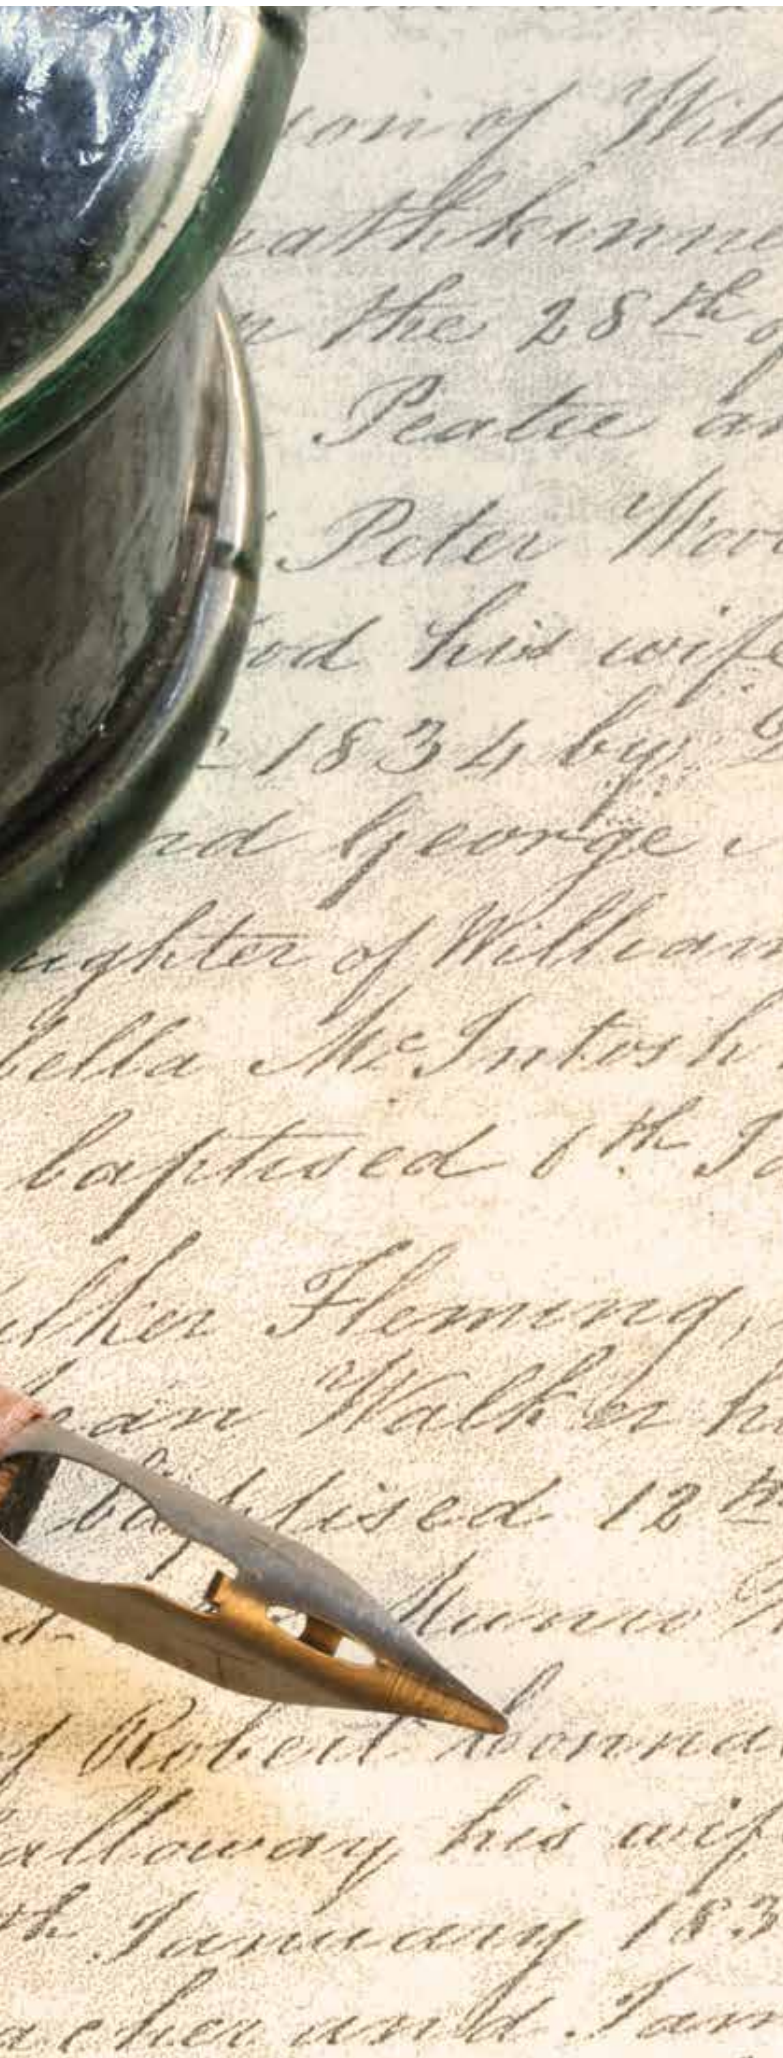 son of Will
athkinne
n the 28th of
Peatie an
Peter Wood
od his wife
1834 by D
nd George
ughter of William
bella McIntosh
baptised 6th Ja
alker Fleming,
Jean Walker hi
baptised 12th
Munro
of Robert Donnal
alloway his wif
th January 183
acher and Jam